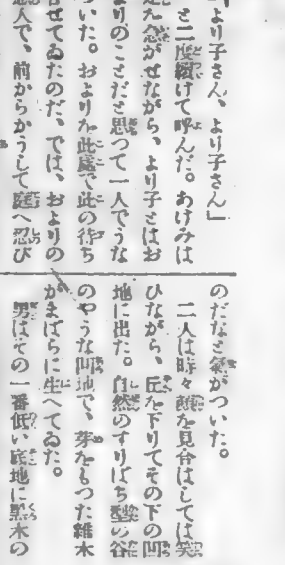 「より子さん、より子さん」
と二度續けて呼んだ。あけみは
な念がせながら、より子とはお
よりのことだと思つて一人でうな
いた。およりを此處で此の待ち
せてゐたのだ、では、およりの
人で、前からかうして庭へ忍び
のだなと氣がついた。
二人は時々顏を見合はしては笑
ひながら、丘を下りてその下の凹
地に出た。自然のすりばち型の谷
のやうな凹地で、芽をもつた雜木
がまばらに生へてゐた。
男はその一番低い底地に黑木の